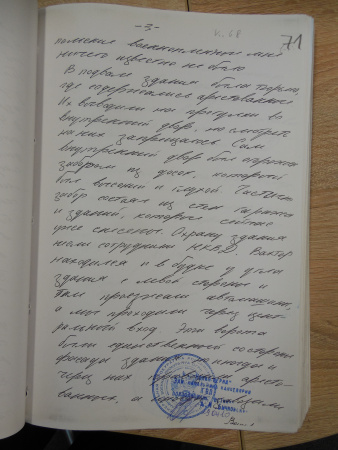 -3-
71
польские военнопленные мне
ничего известно не было
В подвале здания была тюрьма,
где содержались арестованные
Их выводили на прогулки во
внутренний двор, но смотреть
на них запрещалось. Сам
внутренний двор был огорожен
забором из досок, который
был высокий и глухой. Частично
забор состоял из стен гаража
и зданий, которые сейчас
уже снесены. Охрану здания
несли сотрудники НКВД. Вахтер
находился и в будке у угла
здания с левой стороны и
там пропускали автомашины,
а мы проходили через цент-
ральный вход. Эти ворота
были единственной со стороны
фасада здания и иногда и
через них аресто-
ванных, и